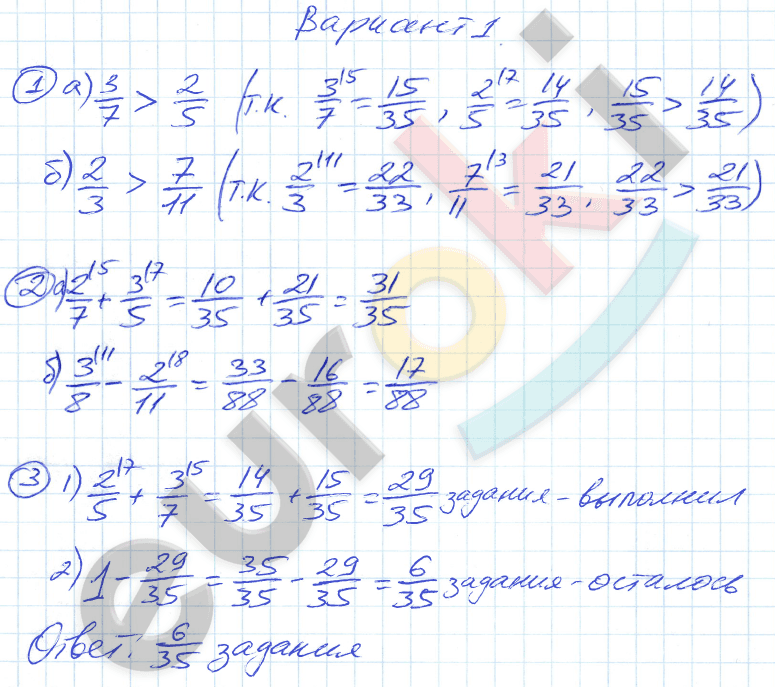 Вариант 1.
① а) 3/7 > 2/5 (т.к. 3/7^{\5} = 15/35, 2/5^{\7} = 14/35, 15/35 > 14/35)
б) 2/3 > 7/11 (т.к. 2/3^{\11} = 22/33, 7/11^{\3} = 21/33, 22/33 > 21/33)
② а) 2/7^{\5} + 3/5^{\7} = 10/35 + 21/35 = 31/35
б) 3/8^{\11} - 2/11^{\8} = 33/88 - 16/88 = 17/88
③ 1) 2/5^{\7} + 3/7^{\5} = 14/35 + 15/35 = 29/35 задания - выполнил
2) 1 - 29/35 = 35/35 - 29/35 = 6/35 задания - осталось
Ответ: 6/35 задания
euroki